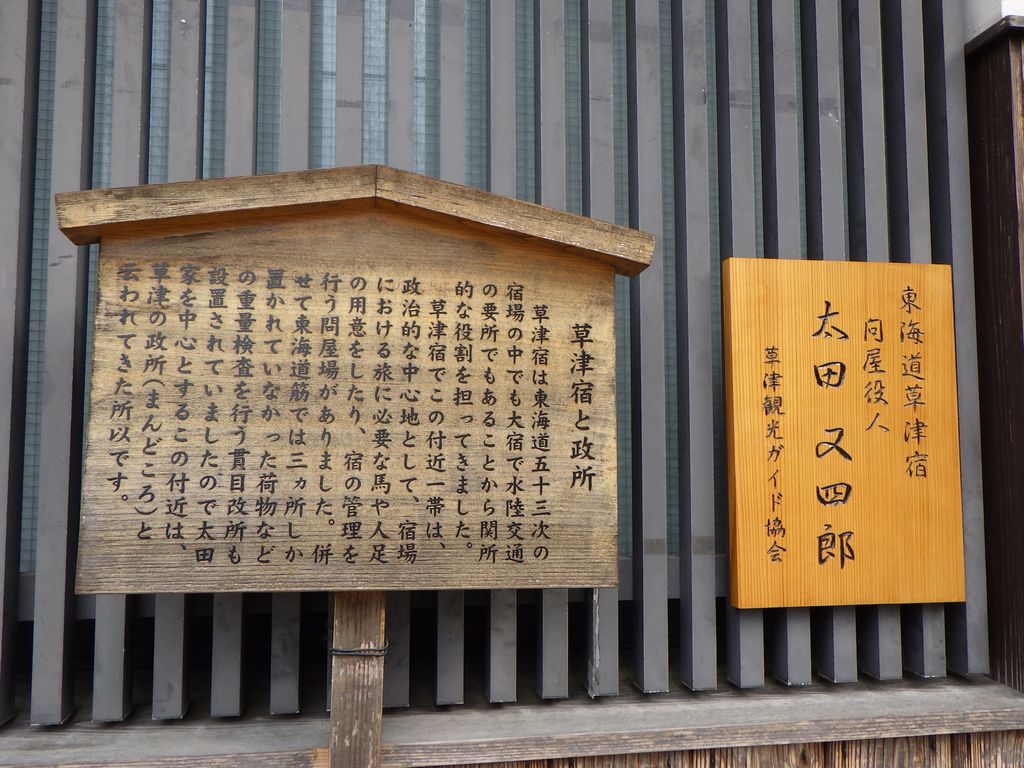 草津宿と政所
草津宿は東海道五十三次の
宿場の中でも大宿で水陸交通
の要所でもあることから関所
的な役割を担ってきました。
草津宿でこの付近一帯は、
政治的な中心地として、宿場
における旅に必要な馬や人足
の用意をしたり、宿の管理を
行う問屋場がありました。併
せて東海道筋では三ヵ所しか
置かれていなかった荷物など
の重量検査を行う貫目改所も
設置されていましたので太田
家を中心とするこの付近は、
草津の政所(まんどころ)と
云われてきた所以です。
東海道草津宿
问屋役人
太田又四郎
草津観光ガイド協会